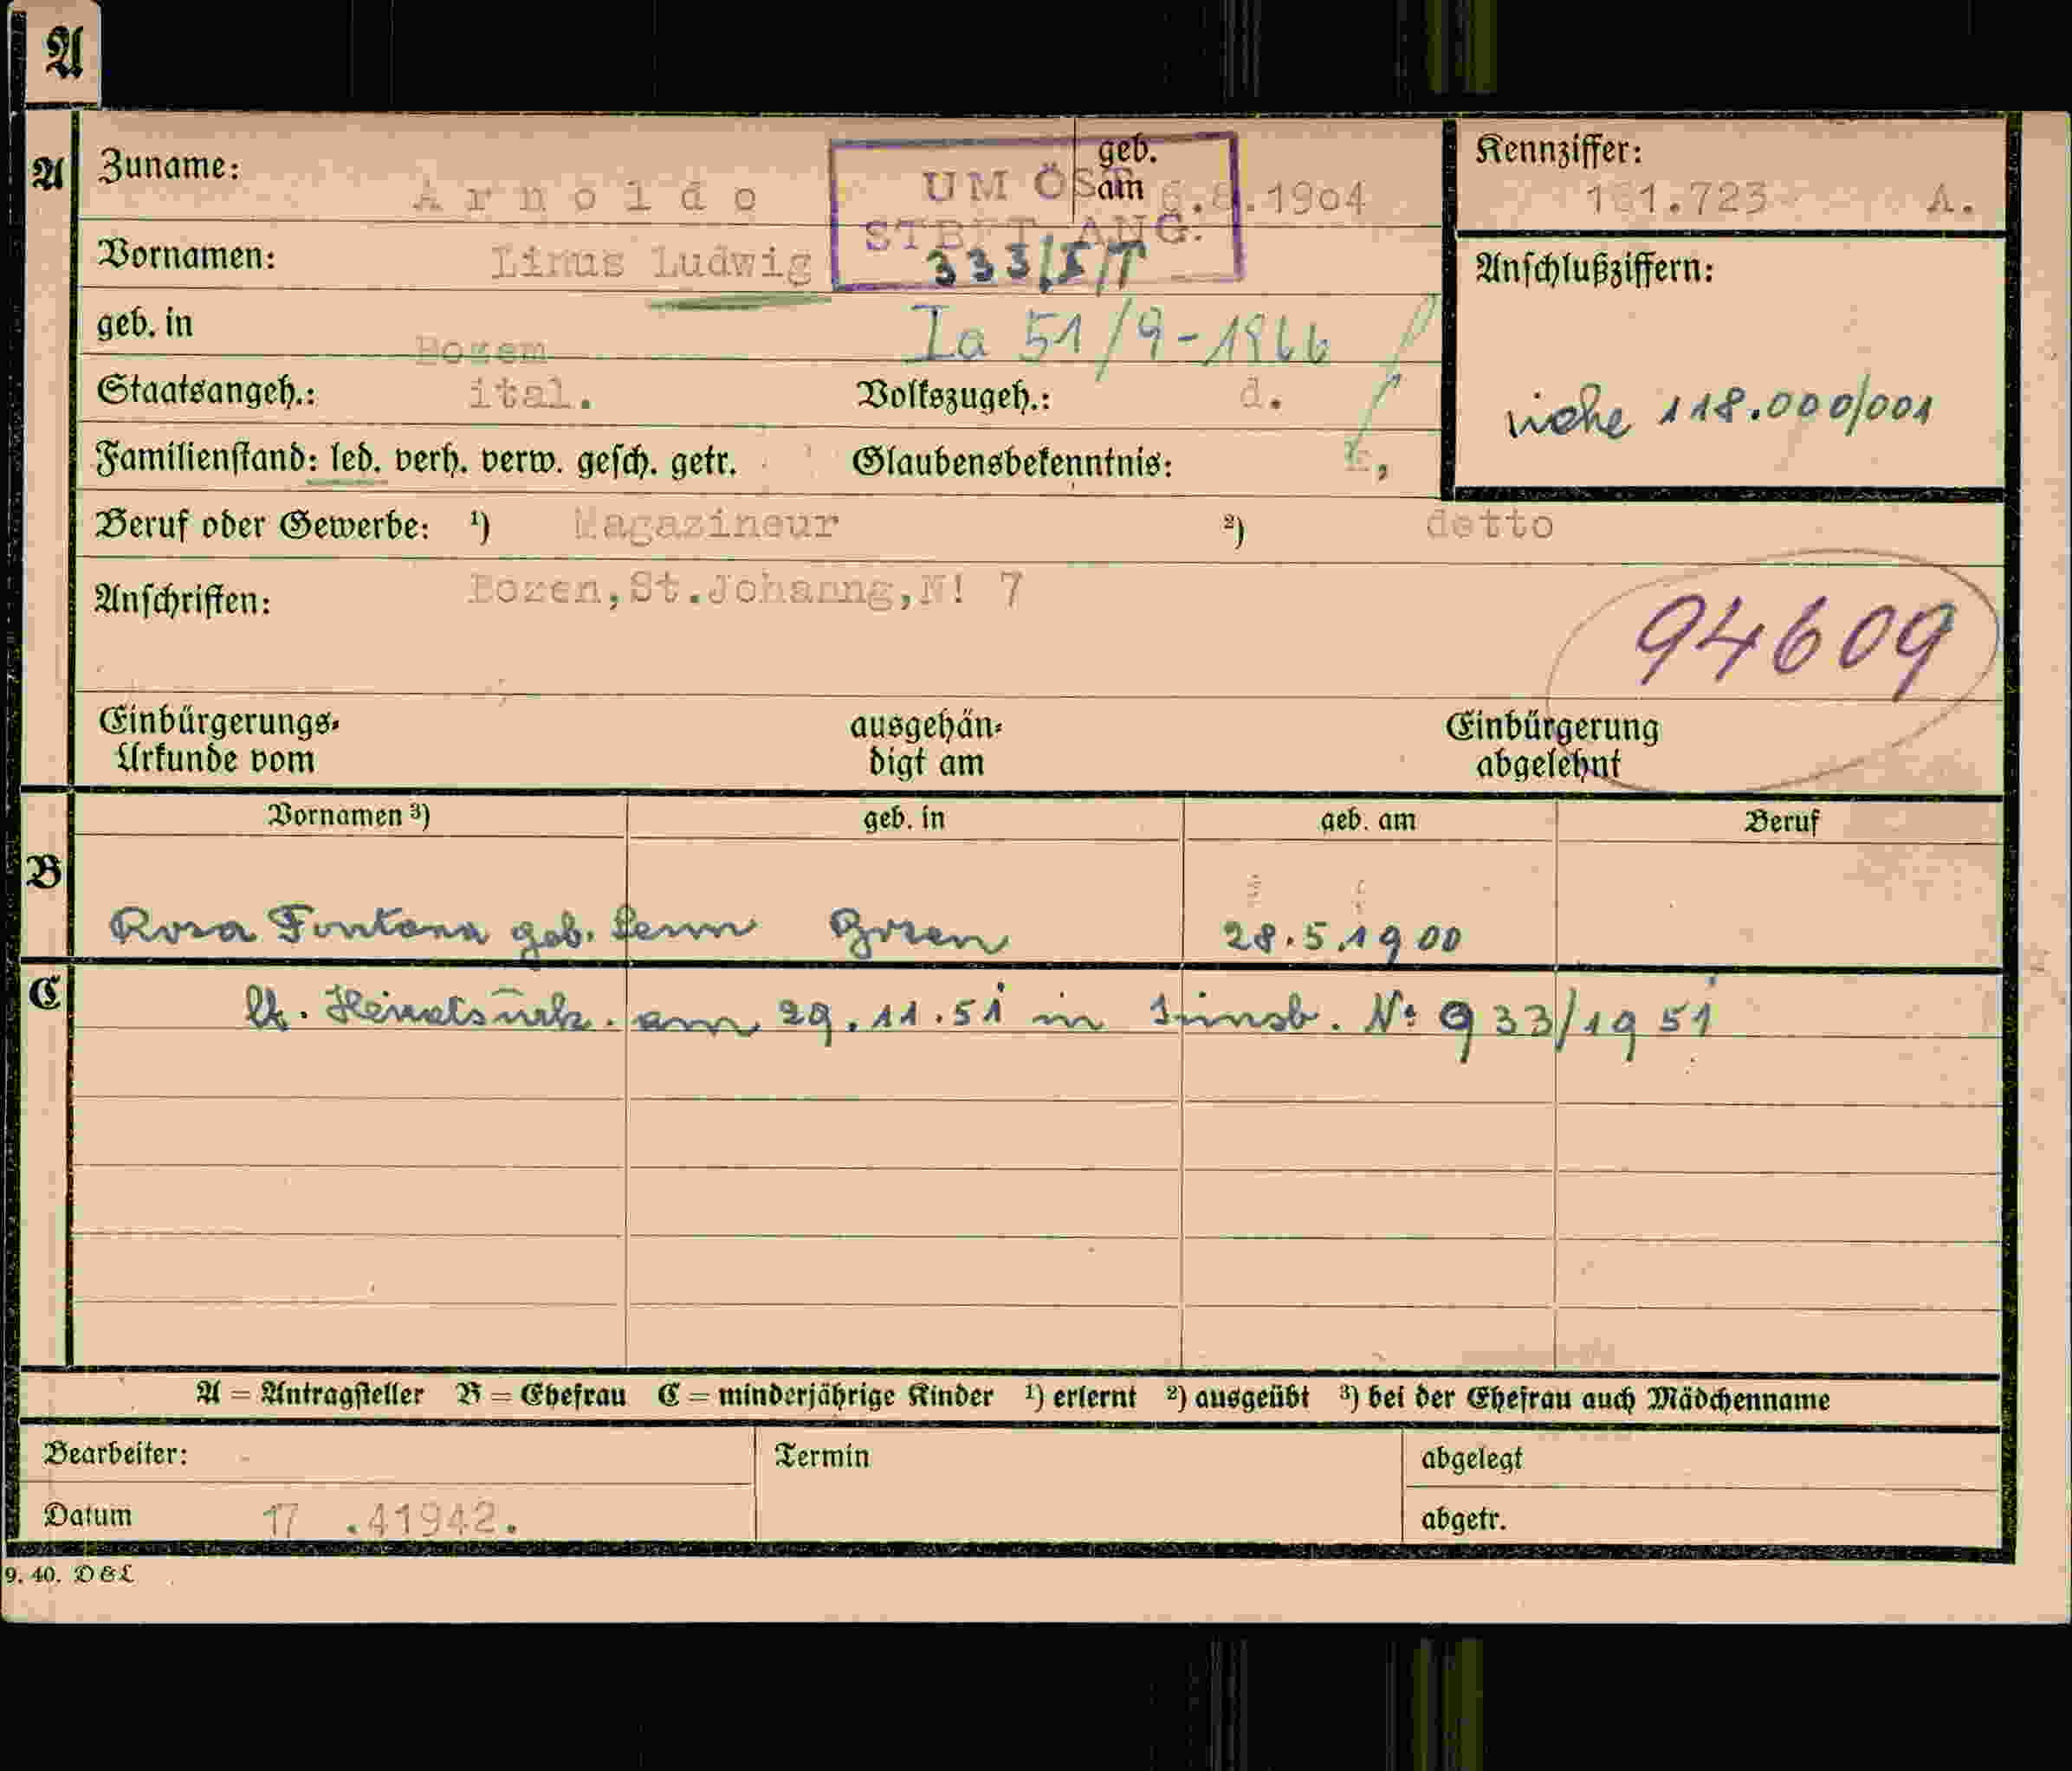 A
A
Zuname: Arnoldo
geb. am 6.8.1904
UM ÖST.
STBFT ANG.
333/I/T
Kennziffer: 161.723 A.
Vornamen: Linus Ludwig
Anschlußziffern:
siehe 118.000/001
geb. in Bozem
Ia 51/9-1966
Staatsangeh.: ital. Volkszugeh.: d.
Familienstand: led. verh. verw. gesch. getr. Glaubensbekenntnis: k,
Beruf oder Gewerbe: ¹) Magazineur ²) detto
Anschriften: Bozen,St.Johanng,N! 7
94609
Einbürgerungs-Urkunde vom ausgehändigt am Einbürgerung abgelehnt
Vornamen ³) geb. in geb. am Beruf
B
Rosa Fontana geb. Senn Bozen 28.5.1900
C
lt. Heiratsurk. am 29.11.51 in Innsb. No 933/1951
A = Antragsteller B = Ehefrau C = minderjährige Kinder ¹) erlernt ²) ausgeübt ³) bei der Ehefrau auch Mädchenname
Bearbeiter: Termin abgelegt
Datum 17 .41942. abgetr.
9. 40. D & L